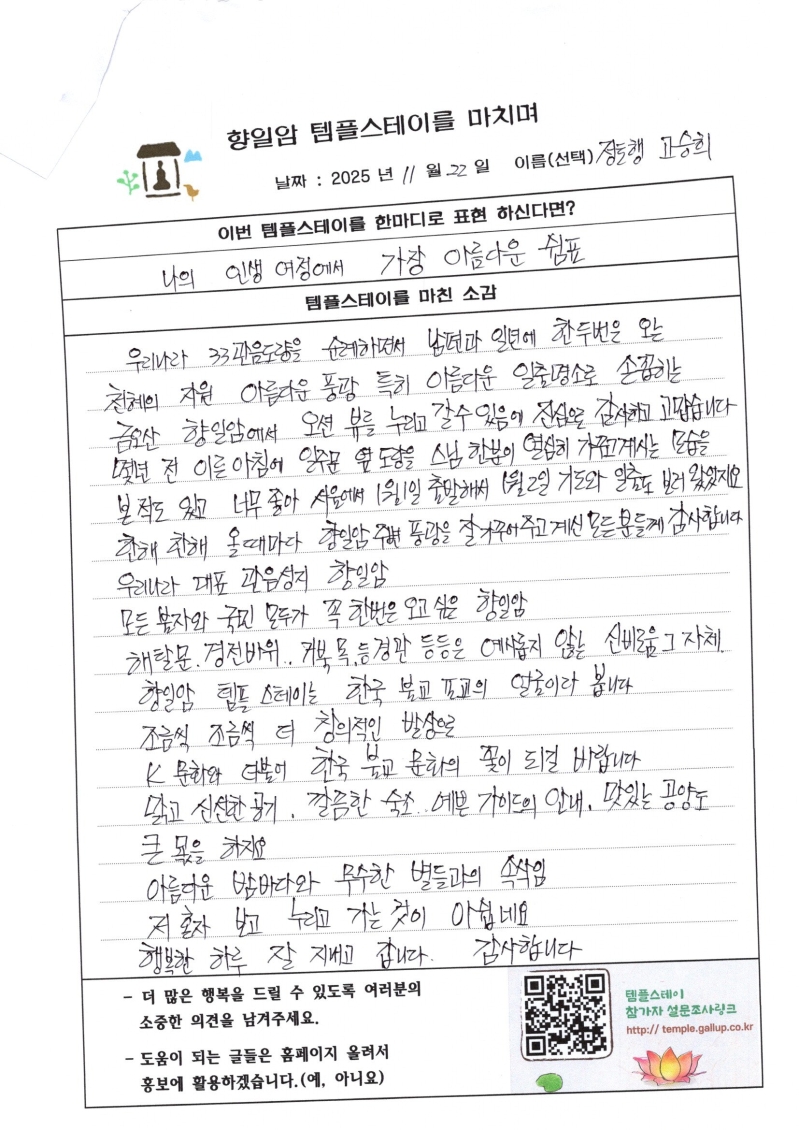 향일암 템플스테이를 마치며
날짜 : 2025 년 11 월 22 일 이름(선택) 정토행 고승희
이번 템플스테이를 한마디로 표현 하신다면?
나의 인생 여정에서 가장 아름다운 쉼표
템플스테이를 마친 소감
우리나라 33관음도량을 순례하면서 남편과 일년에 한두번은 오는
천혜의 자원 아름다운 풍광 특히 아름다운 일출명소로 손꼽히는
금오산 향일암에서 오션 뷰를 누리고 갈수 있음에 진심으로 감사하고 고맙습니다
몇년 전 이른아침에 일주문 옆 도량을 스님 한분이 열심히 가꾸고계시는 모습을
본적도 있고 너무 좋아 서울에서 1월1일 출발해서 1월2일 기도와 일출도 보러 왔었지요
한해 한해 올때마다 향일암 주변 풍광을 잘가꾸어주고계신 모든분들께 감사합니다
우리나라 대표 관음성지 향일암
모든 불자와 국민 모두가 꼭 한번은 오고 싶은 향일암
해탈문. 경전바위.. 거북 목, 등경관 등등은 예사롭지 않는 신비로움 그 자체.
향일암 템플 스테이는 한국 불교 포교의 얼굴이라 봅니다
조금씩 조금씩 더 창의적인 발상으로
K 문화와 더불어 한국 불교 문화의 꽃이 되길 바랍니다
맑고 신선한 공기, 깔끔한 숙소.. 예쁜 가이드의 안내, 맛있는 공양도
큰 몫을 하지요
아름다운 밤바다와 무수한 별들과의 속삭임
저 혼자 보고 누리고 가는 것이 아쉽네요
행복한 하루 잘 지내고 갑니다. 감사합니다
- 더 많은 행복을 드릴 수 있도록 여러분의
소중한 의견을 남겨주세요.
- 도움이 되는 글들은 홈페이지 올려서
홍보에 활용하겠습니다.(예, 아니요)
템플스테이
참가자 설문조사링크
http:// temple.gallup.co.kr